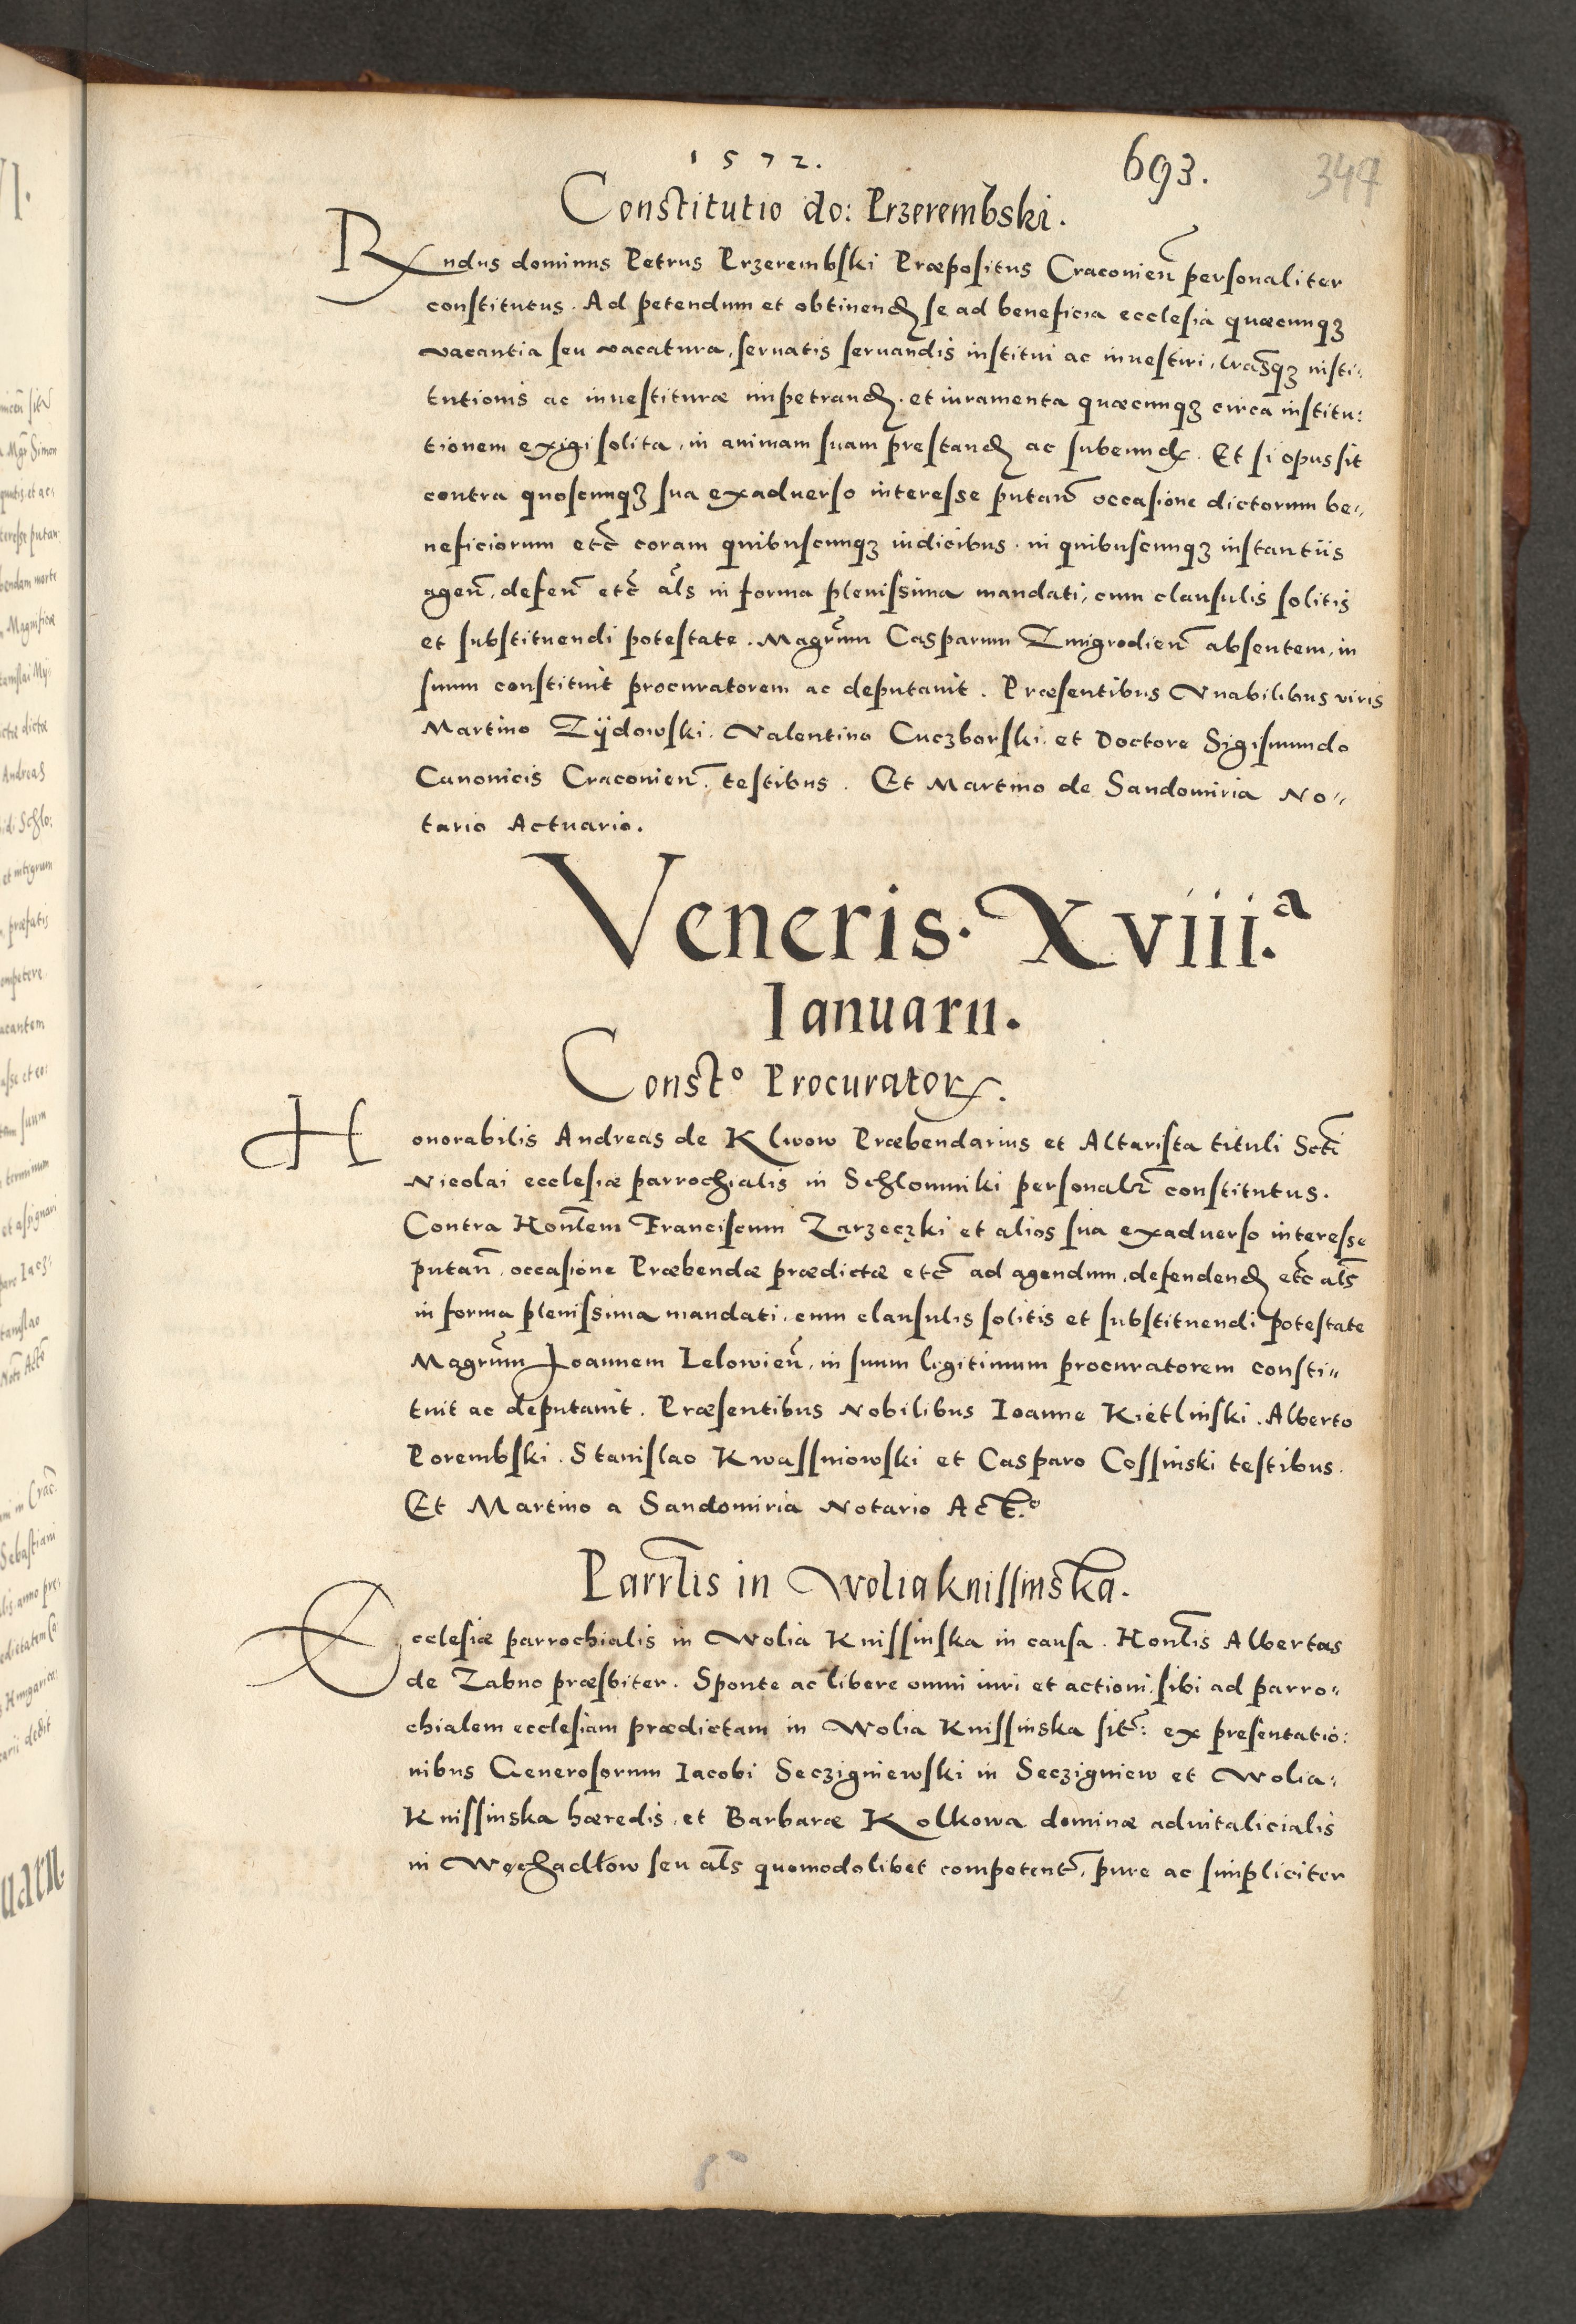 1572.
693.
347
Constitutio do: Przerembski.
Rndus dominus Petrus Przerembski Præpositus Craconien̄ personaliter
constitutus. Ad petendum et obtinend se ad beneficia ecclesia quæcunqȝ
vacantia seu vacatura, seruatis seruandis institui ac inuestiri, lrasqȝ insti:
tutionis ac inuestituræ impetrand. et iuramenta quæcunqȝ circa institu:
tionem exigi solita, in animam suam prestand ac subeund. Et si opus sit
contra quoscunqȝ sua exaduerso interesse putan̄ occasione dictorum be,,
neficiorum etc̄ coram quibuscunqȝ iudicibus. in quibuscunqȝ instantiis
agen̄, defen̄ etc̄ al̄s in forma plenissima mandati, cum clausulis solitis
et substituendi potestate. Magr̄um Casparum Zmigrodien̄ absentem, in
suum constituit procuratorem ac deputauit. Præsentibus Vnabilibus viris
Martino Zÿdowski. Valentino Cuczborski. et Doctore Sigismundo
Canonicis Craconien̄. testibus. Et Martino de Sandomiria No,,
tario Actuario.
Veneris. Xviii.ᵃ
Ianuarii.
Constᵒ Procurator.
Honorabilis Andreas de Klwow Præbendarius et Altarista tituli Sc̄ti
Nicolai ecclesiæ parrochialis in Schlomniki personalr̄ constitutus.
Contra Honl̄em Franciscum Zarzeczki et alios sua exaduerso interesse
putan̄, occasione Præbendæ prædictæ etc̄ ad agendum, defendend etc̄ al̄s
in forma plenissima mandati, cum clausulis solitis et substituendi potestate
Magr̄um Joannem Lelowien̄, in suum legitimum procuratorem consti,,
tuit ac deputauit. Præsentibus Nobilibus Ioanne Kietlinski. Alberto
Porembski. Stanislao Kwassniowski et Casparo Cossinski testibus.
Et Martino a Sandomiria Notario Act̄.ᵒ
Parrl̄is in Wolia Knissinska.
Ecclesiæ parrochialis in Wolia Knissinska in causa. Honl̄is Albertas
de Zabno præsbiter. Sponte ac libere omni iuri et actioni, sibi ad parro,,
chialem ecclesiam prædictam in Wolia Knissinska sit̄: ex presentatio:
nibus Generosorum Iacobi Seczigniewski in Seczigniew et Wolia:
Knissinska hæredis, et Barbaræ Kolkowa dominæ aduitalicialis
in Węchadłow seu al̄s quomodolibet competent̄, pure ac simpliciter